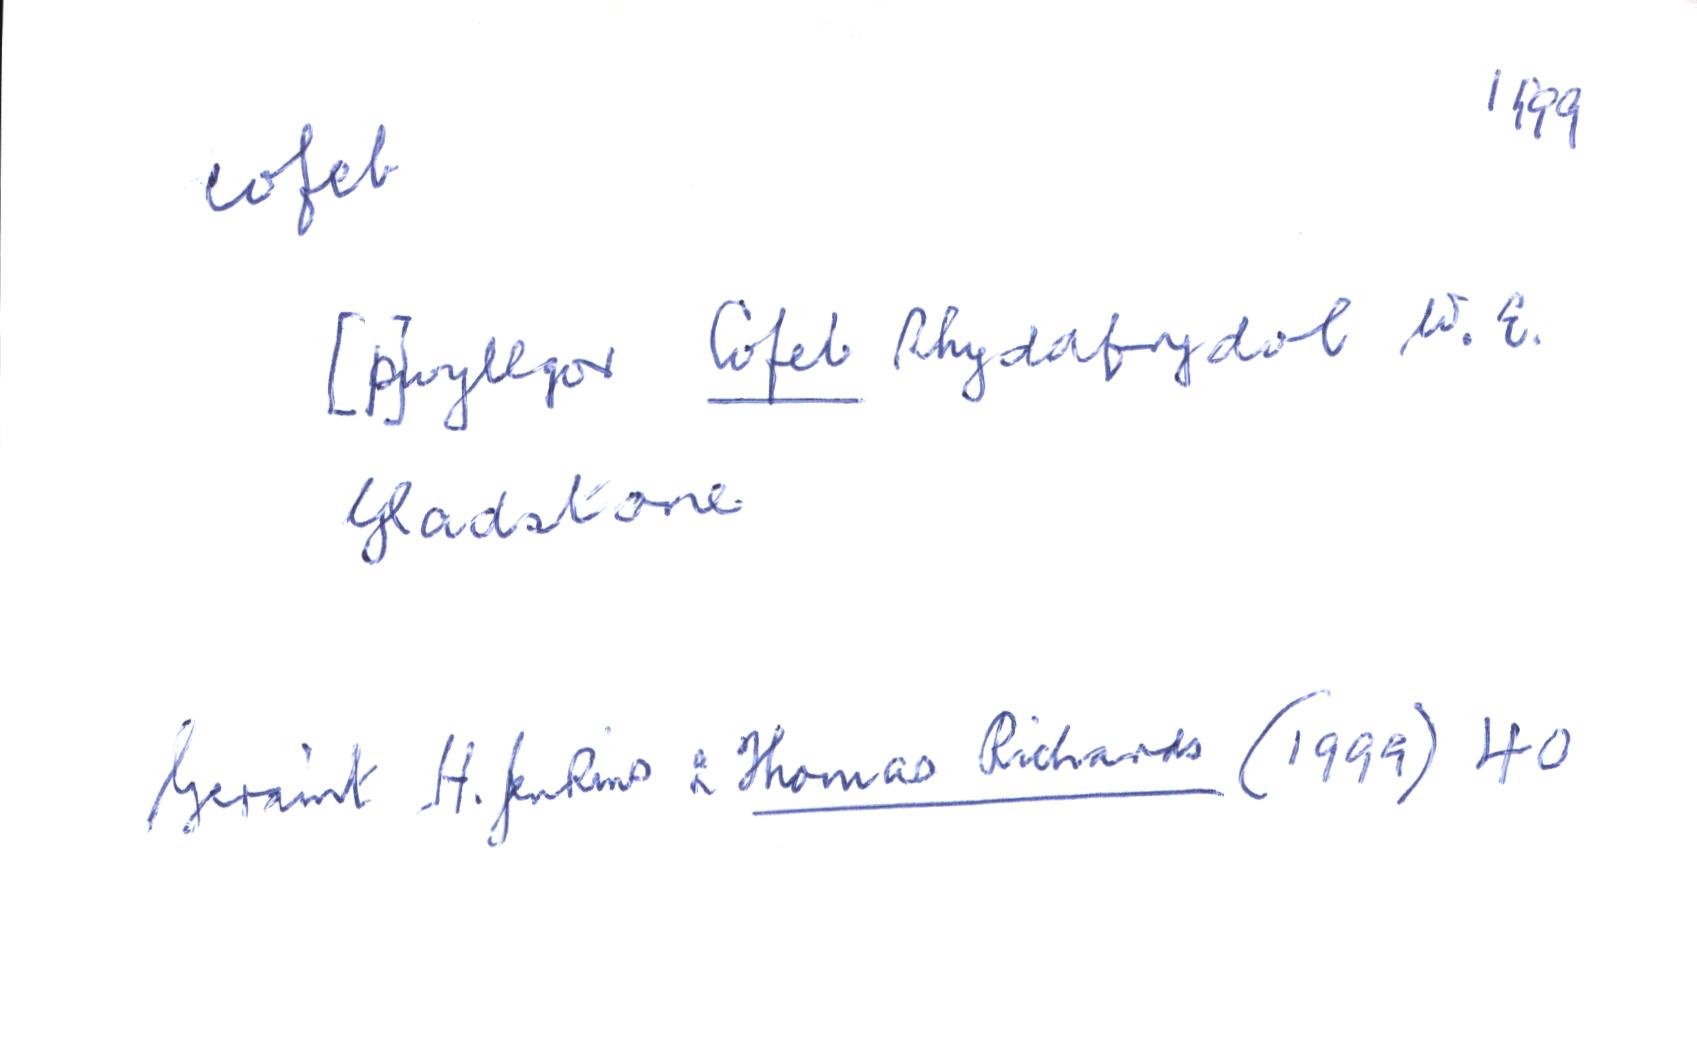 1999
cofeb
[p]wyllgor Cofeb Rhyddfrydol W. E.
Gladstone
Geraint H. Jenkins : Thomas Richards (1999) 40